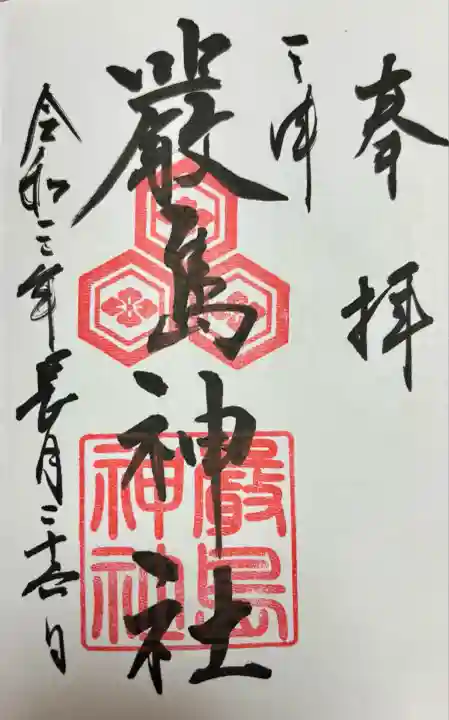 奉拝
三津
嚴島神社
嚴島神社
令和三年長月二十六日